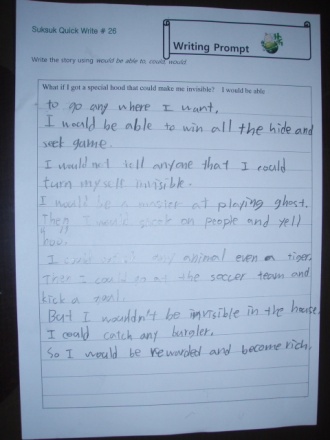 Suksuk Quick Write # 26
Writing Prompt
Write the story using would be able to, could, would
What if I got a special hood that could make me invisible? I would be able
to go any where I want.
I would be able to win all the hide and
seek game.
I would not tell anyone that I could
turn myself invisible.
I would be a master at playing ghost.
Then I would sneak on people and yell
boo.
I could animal even a tiger.
Then I could go at the soccer team and
kick a
But I wouldn't be invisible in the house.
I could catch any burgler.
So I would be rewarded and become rich.